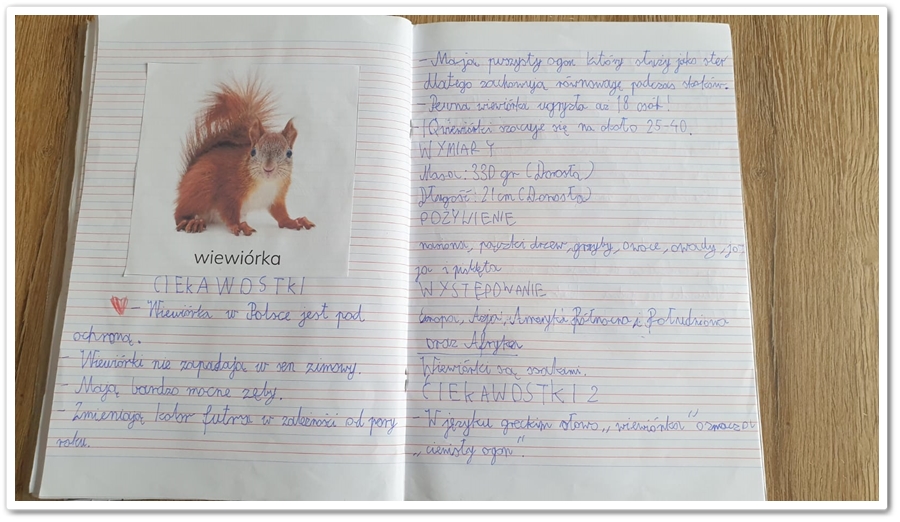 wiewiórka
CIEKAWOSTKI
- Wiewiórka w Polsce jest pod
ochroną.
- Wiewiórki nie zapadają w sen zimowy.
- Mają bardzo mocne zęby.
- Zmieniają kolor futra w zależności od pory
roku.
- Mają puszysty ogon który służy jako ster
dlatego zachowują równowagę podczas skoków.
- Pewna wiewiórka ugryzła aż 18 osób!
- IQ wiewiórki szacuje się na około 25-40.
WYMIARY
Masa: 330 gr (Dorosła)
Długość: 21 cm (Dorosła)
POŻYWIENIE
nasiona, pączki drzew, grzyby, owoce, owady, ja-
ja i pisklęta
WYSTĘPOWANIE
Europa, Azja, Ameryka Północna i Południowa
oraz Afryka
Wiewiórki są ssakami.
CIEKAWOSTKI 2
- W języku greckim słowo „wiewiórka" oznacza
„cienisty ogon".